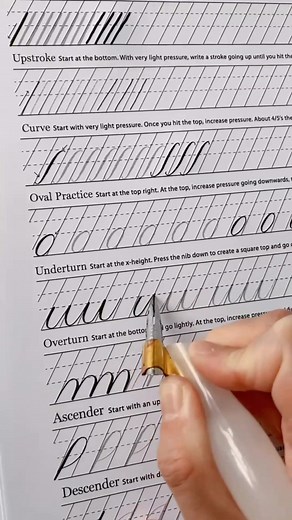 Upstroke Start at the bottom. With very light pressure, write a stroke going up until you hit the
Curve Start with very light pressure. Once you hit the top, increase pressure. About 4/5's the
Oval Practice Start at the top right. At the top, increase pressure going downwards,
Underturn Start at the x-height. Press the nib down to create a square top and go
Overturn Start at the bottom go lightly. At the top, increase
Ascender Start with an up
Descender Start with d